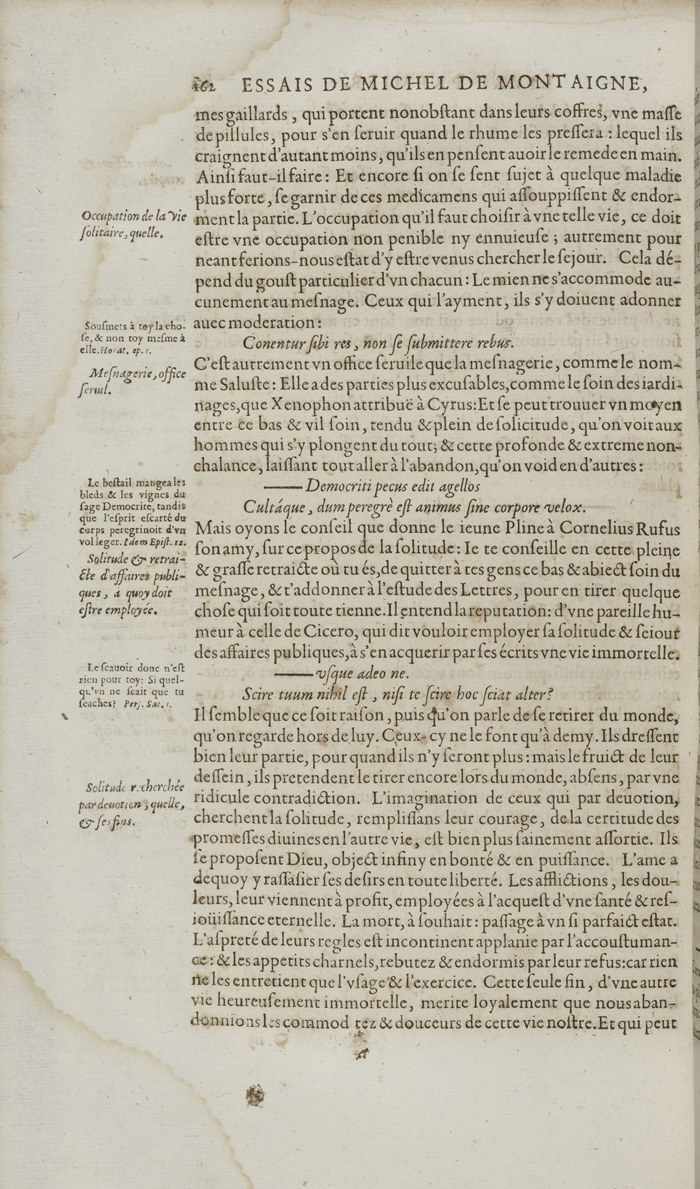 162 ESSAIS DE MICHEL DE MONTAIGNE,
mes gaillards, qui portent nonobſtant dans leurs coffres, vne maſſe
de pillules, pour s'en ſeruir quand le rhume les preſſera : lequel ils
craignent d'autant moins, qu'ils en penſent auoir le remede en main.
Ainſi faut-il faire: Et encore ſi on ſe ſent ſujet à quelque maladie
plus forte, ſe garnir de ces medicamens qui aſſoupiſſent & endor-
ment la partie. L'occupation qu'il faut choiſir à vne telle vie, ce doit
eſtre vne occupation non penible ny ennuieuſe ; autrement pour
neant ferions-nous eſtat d'y eſtre venus chercher le ſejour. Cela dé-
pend du gouſt particulier d'vn chacun : Le mien ne s'accommode au-
cunement au meſnage. Ceux qui l'ayment, ils s'y doiuent adonner
auec moderation :
Conentur ſibi res, non ſe ſubmittere rebus.
C'eſt autrement vn office ſeruile que la meſnagerie, comme le nom-
me Saluſte : Elle a des parties plus excuſables, comme le ſoin des iardi-
nages, que Xenophon attribuë à Cyrus: Et ſe peut trouuer vn moyen
entre ce bas & vil ſoin, tendu & plein de ſolicitude, qu'on voit aux
hommes qui s'y plongent du tout; & cette profonde & extreme non-
chalance, laiſſant tout aller à l'abandon, qu'on void en d'autres :
—— Democriti pecus edit agellos
Cultáque, dum peregrè eſt animus ſine corpore velox.
Mais oyons le conſeil que donne le ieune Pline à Cornelius Rufus
ſon amy, ſur ce propos de la ſolitude : Ie te conſeille en cette pleine
& graſſe retraicte où tu és, de quitter à tes gens ce bas & abiect ſoin du
meſnage, & t'addonner à l'eſtude des Lettres, pour en tirer quelque
choſe qui ſoit toute tienne. Il entend la reputation: d'vne pareille hu-
meur à celle de Cicero, qui dit vouloir employer ſa ſolitude & ſeiour
des affaires publiques, à s'en acquerir par ſes écrits vne vie immortelle.
—— vſque adeo ne.
Scire tuum nihil eſt, niſi te ſcire hoc ſciat alter?
Il ſemble que ce ſoit raiſon, puis qu'on parle de ſe retirer du monde,
qu'on regarde hors de luy. Ceux-cy ne le font qu'à demy. Ils dreſſent
bien leur partie, pour quand ils n'y ſeront plus : mais le fruict de leur
deſſein, ils pretendent le tirer encore lors du monde, abſens, par vne
ridicule contradiction. L'imagination de ceux qui par deuotion,
cherchent la ſolitude, rempliſſans leur courage, de la certitude des
promeſſes diuines en l'autre vie, eſt bien plus ſainement aſſortie. Ils
ſe propoſent Dieu, object infiny en bonté & en puiſſance. L'ame a
dequoy y raſſaſier ſes deſirs en toute liberté. Les afflictions, les dou-
leurs, leur viennent à profit, employées à l'acqueſt d'vne ſanté & reſ-
ioüiſſance eternelle. La mort, à ſouhait : paſſage à vn ſi parfaict eſtat.
L'aſpreté de leurs regles eſt incontinent applanie par l'accouſtuman-
ce : & les appetits charnels, rebutez & endormis par leur refus: car rien
ne les entretient que l'vſage & l'exercice. Cette ſeule fin, d'vne autre
vie heureuſement immortelle, merite loyalement que nous aban-
donnions les commod tez & douceurs de cette vie noſtre. Et qui peut
Occupation de la vie
ſolitaire, quelle.
Souſmets à toy la cho-
ſe, & non toy meſme à
elle. Horat. ep. 1.
Meſnagerie, office
ſeruil.
Le beſtail mangea les
bleds & les vignes du
ſage Democrite, tandis
que l'eſprit eſcarté du
corps peregrinoit d'vn
vol leger. Idem Epiſt. 12.
Solitude & retrai-
cte d'affaires publi-
ques, à quoy doit
eſtre employée.
Le ſcauoir donc n'eſt
rien pour toy: Si quel-
qu'vn ne ſcait que tu
ſcaches? Perſ. Sat. 1.
Solitude recherchée
par deuotion, quelle,
& ſes fins.